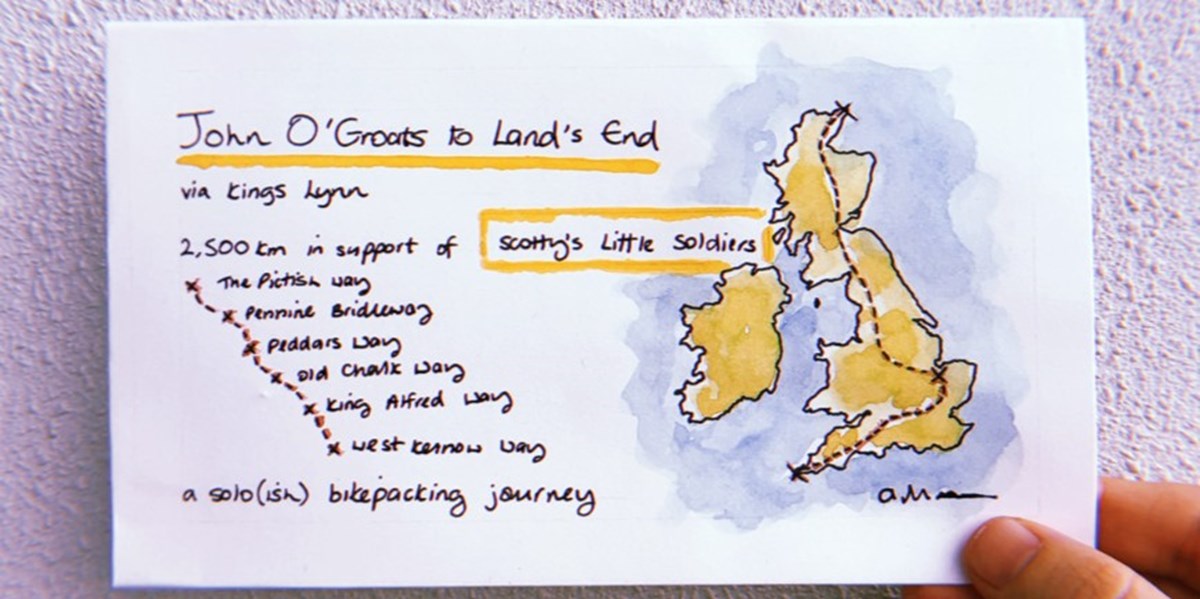 John O'Groats to Land's End
via Kings Lynn
2,500 km in support of Scotty's Little Soldiers
The Pictish Way
Pennine Bridleway
Peddars Way
Old Chalk Way
King Alfred Way
West Kernow Way
a solo(ish) bikepacking journey